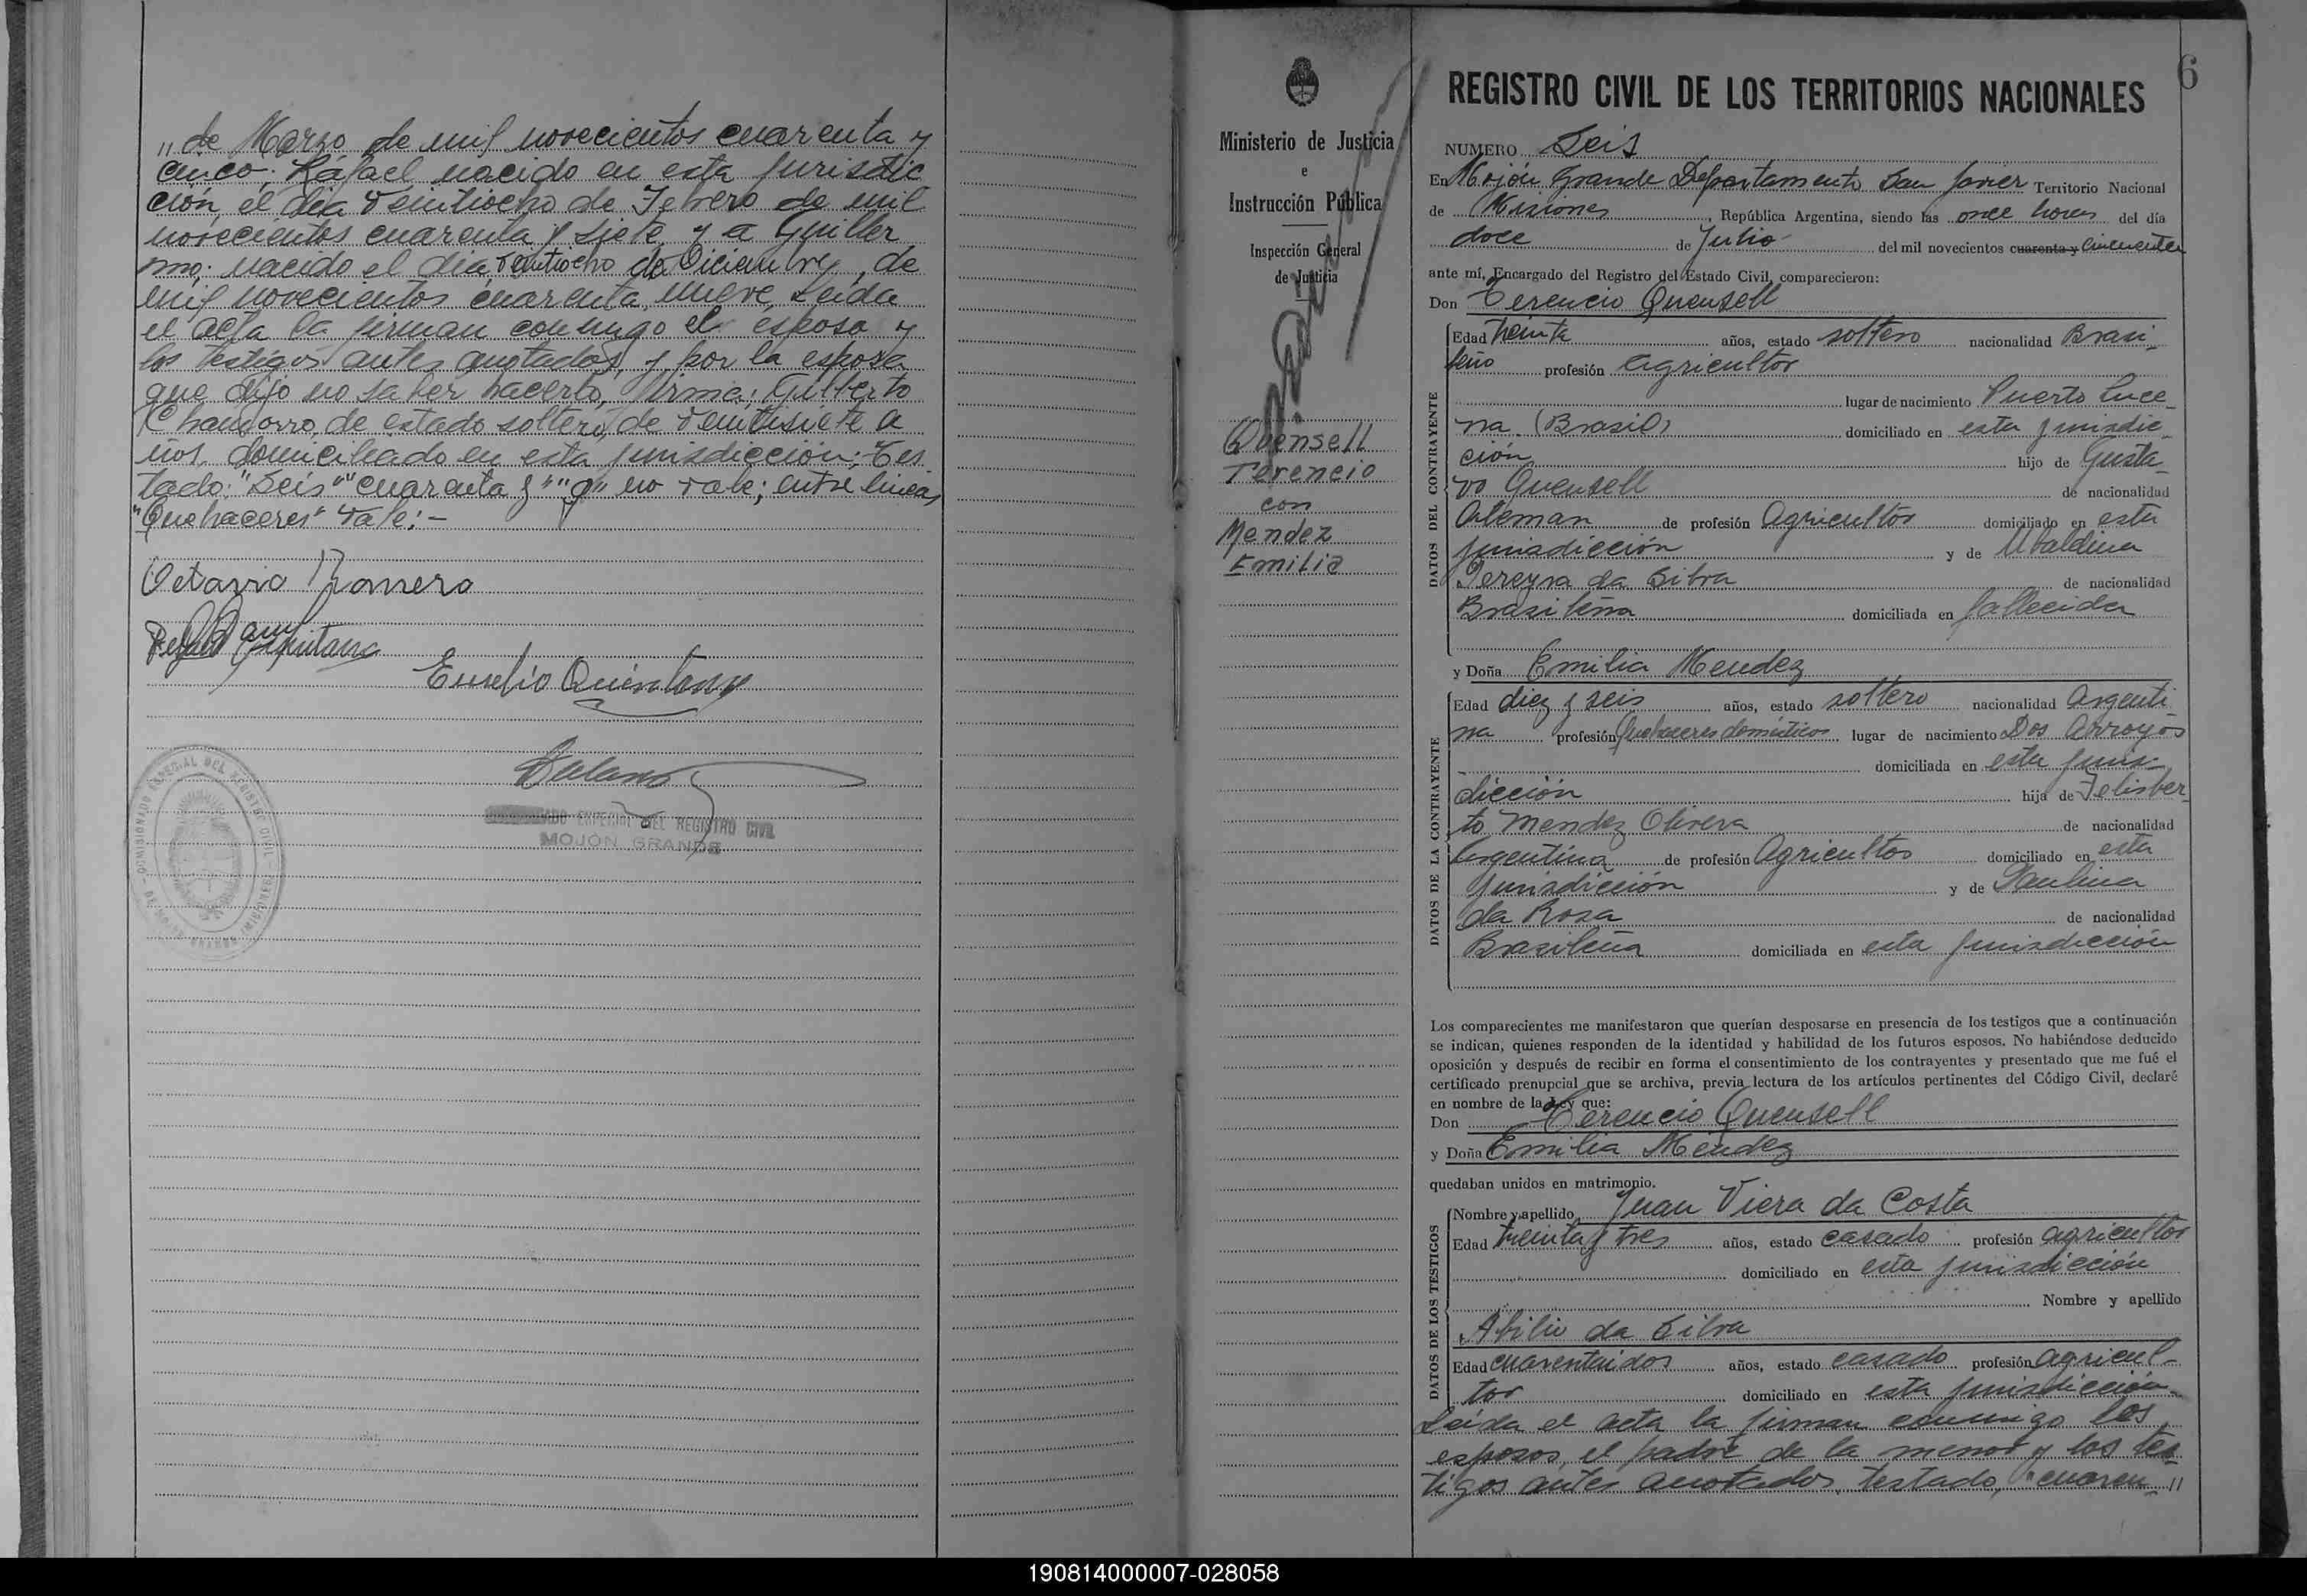 „ de Marzo de mil novecientos cuarenta y
cinco; Rafael nacido en esta jurisdic
ción, el día veintiocho de Febrero de mil
novecientos cuarenta y siete y a Guiller
mo; nacido el día veintiocho de Diciembre, de
mil novecientos cuarenta nueve, Leida
el acta la firman conmigo el esposo y
los testigos antes anotados, y por la esposa
que dijo no saber hacerlo, firma; Gilberto
Chamorro, de estado soltero, de veintisiete a
ños, domiciliado en esta jurisdicción; Tes
tado: "Seis" "cuarenta y" "g" no vale; entre lineas
"Quehaceres" vale; -
Octavio Romero
Quintana
Eusebio Quintana
ESPECIAL DEL REGISTRO CIVIL
MOJON GRANDE
Ministerio de Justicia
e
Instrucción Pública
Inspección General
de Justicia
Quensell
Terencio
con
Mendez
Emilia
6
REGISTRO CIVIL DE LOS TERRITORIOS NACIONALES
NUMERO Seis
En Mojón Grande Departamento San Javier Territorio Nacional
de Misiones, República Argentina, siendo las once horas del día
doce de Julio del mil novecientos cuarenta y cincuenta
ante mí, Encargado del Registro del Estado Civil, comparecieron:
Don Terencio Quensell
DATOS DEL CONTRAYENTE
Edad treinta años, estado soltero nacionalidad Brasi-
leño profesión agricultor
lugar de nacimiento Puerto Luce-
na (Brasil) domiciliado en esta jurisdic-
ción hijo de Gusta-
vo Quensell de nacionalidad
Aleman de profesión Agricultor domiciliado en esta
jurisdicción y de Ubaldina
Pereyra da Silva de nacionalidad
Brasileña domiciliada en fallecida
y Doña Emilia Mendez
DATOS DE LA CONTRAYENTE
Edad diez y seis años, estado soltero nacionalidad Argenti
na profesión Quehaceres domésticos lugar de nacimiento Dos Arroyos
domiciliada en esta juris-
dicción hija de Felisber-
to Mendez Olivera de nacionalidad
Argentina de profesión Agricultor domiciliado en esta
jurisdicción y de Paulina
da Rosa de nacionalidad
Brasileña domiciliada en esta jurisdicción
Los comparecientes me manifestaron que querían desposarse en presencia de los testigos que a continuación
se indican, quienes responden de la identidad y habilidad de los futuros esposos. No habiéndose deducido
oposición y después de recibir en forma el consentimiento de los contrayentes y presentado que me fué el
certificado prenupcial que se archiva, previa lectura de los artículos pertinentes del Código Civil, declaré
en nombre de la Ley que:
Don Terencio Quensell
y Doña Emilia Méndez
quedaban unidos en matrimonio.
DATOS DE LOS TESTIGOS
Nombre y apellido Juan Viera da Costa
Edad treinta y tres años, estado casado profesión agricultor
domiciliado en esta jurisdicción
Nombre y apellido
Abilio da Silva
Edad cuarentaidos años, estado casado profesión agricul-
tor domiciliado en esta jurisdicción
Leída el acta la firman conmigo los
esposos, el padre de la menor y los tes-
tigos antes anotados. testado, "cuaren-„
190814000007-028058